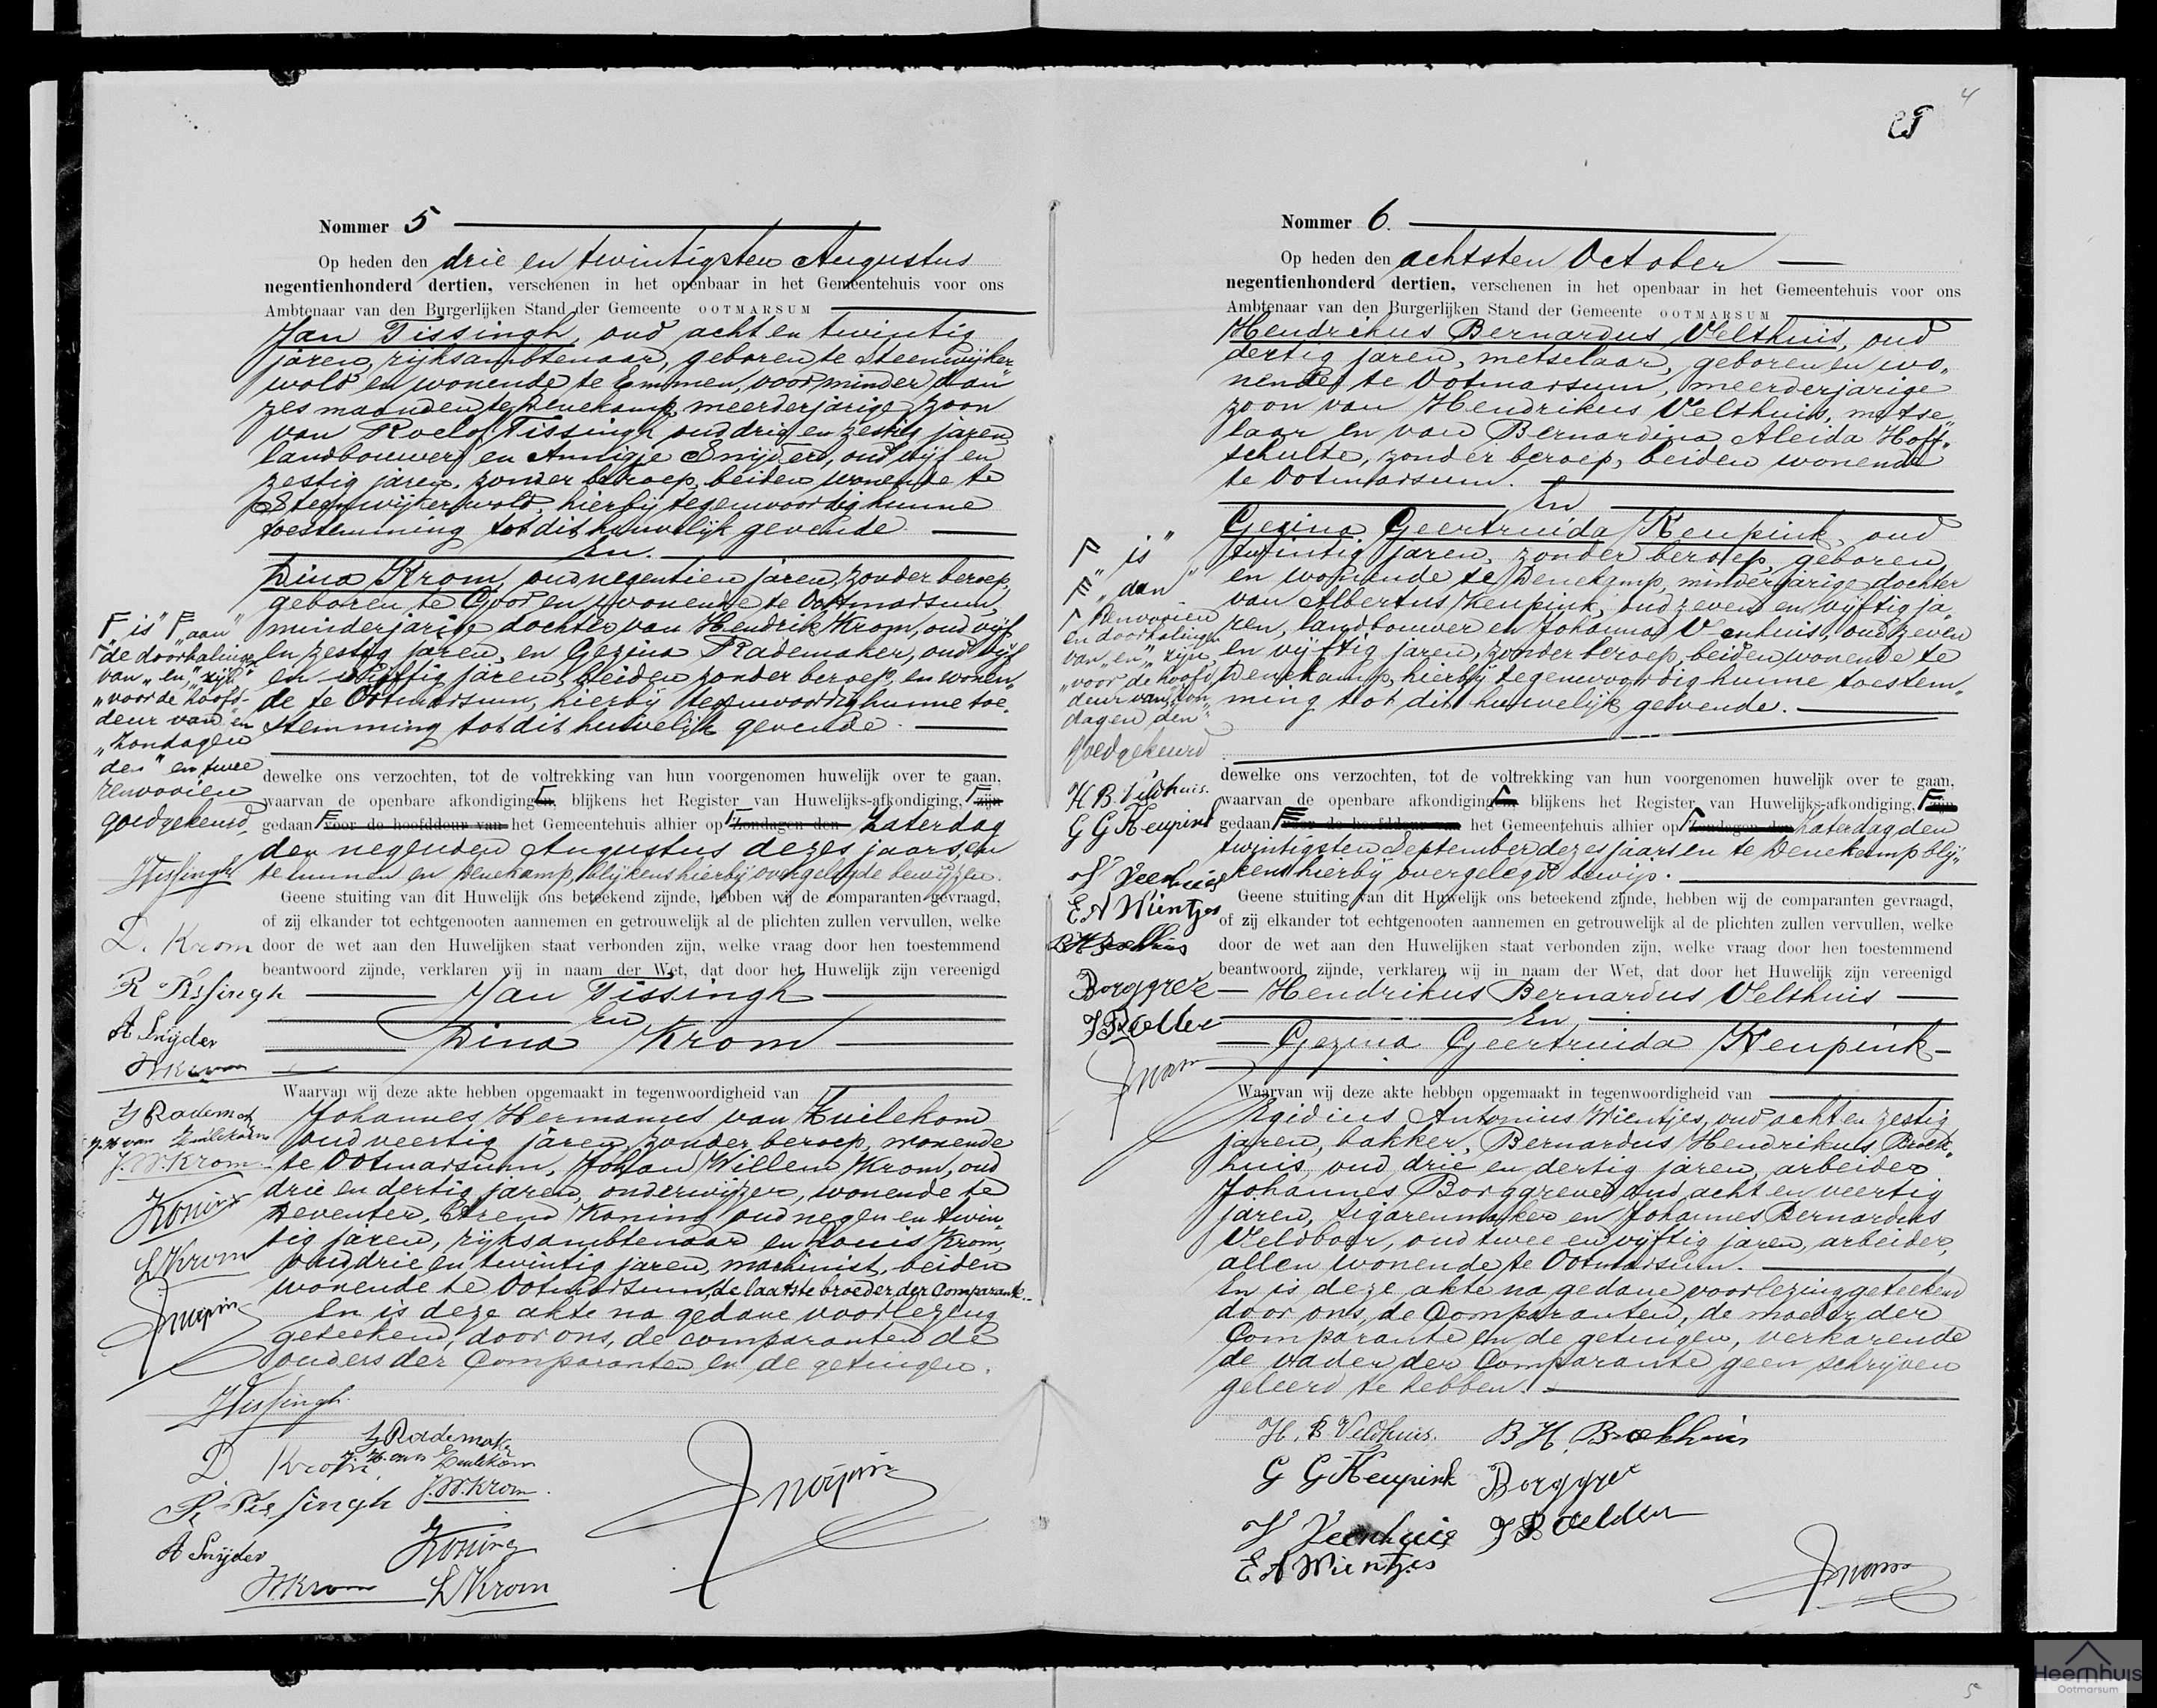 4
Nommer 5
Op heden den drie en twintigsten Augustus
negentienhonderd dertien, verschenen in het openbaar in het Gemeentehuis voor ons
Ambtenaar van den Burgerlijken Stand der Gemeente OOTMARSUM
Jan Tissingh, oud acht en twintig
jaren, rijksambtenaar, geboren te Steenwijker-
wold en wonende te Emmen, voor minder dan
zes maanden te Denekamp, meerderjarige zoon
van Roelof Tissingh oud drie en zestig jaren,
landbouwer en Annigje Snijder, oud vijf en
zestig jaren, zonder beroep, beiden wonende te
Steenwijkerwold, hierbij tegenwoordig hunne
toestemming tot dit huwelijk gevende
En.
Dina Krom, oud negentien jaren, zonder beroep,
geboren te Goor en wonende te Ootmarsum,
minderjarige dochter van Hendrik Krom, oud vijf
en zestig jaren, en Gezina Rademaker, oud vijf
en vijftig jaren, beiden zonder beroep, en wonen„
de te Ootmarsum, hierbij tegenwoordig hunne toe„
stemming tot dit huwelijk gevende
dewelke ons verzochten, tot de voltrekking van hun voorgenomen huwelijk over te gaan,
waarvan de openbare afkondigingen, blijkens het Register van Huwelijks-afkondiging, zijn
gedaan voor de hoofddeur van het Gemeentehuis alhier op Zondagen den Zaterdag
den negenden Augustus dezes jaars, en
te Emmen en Denekamp, blijkens hierbij overgelegde bewijzen.
Geene stuiting van dit Huwelijk ons beteekend zijnde, hebben wij de comparanten gevraagd,
of zij elkander tot echtgenooten aannemen en getrouwelijk al de plichten zullen vervullen, welke
door de wet aan den Huwelijken staat verbonden zijn, welke vraag door hen toestemmend
beantwoord zijnde, verklaren wij in naam der Wet, dat door het Huwelijk zijn vereenigd
Jan Tissingh
en
Dina Krom
Waarvan wij deze akte hebben opgemaakt in tegenwoordigheid van
Johannes Hermannes van Zuilekom
oud veertig jaren, zonder beroep, wonende
te Ootmarsum, Johan Willem Krom, oud
drie en dertig jaren, onderwijzer, wonende te
Deventer, Arend Koning oud negen en twin„
tig jaren, rijksambtenaar en Louis Krom,
oud drie en twintig jaren, machinist, beiden
wonende te Ootmarsum, de laatste broeder der Comparante.
En is deze akte na gedane voorlezing
geteekend, door ons, de comparanten de
ouders der Comparanten en de getuigen.
JTissingh
D Krom
R Tissingh
A Snijder
HKrom
G Rademaker
J. H. van Zuilekom
J.W. Krom.
Koning
L Krom
F „is" F „aan"
de doorhalingen
van „en", „zijn"
„voor de hoofd-
deur van" en
„Zondagen
den" en twee
renvooien
goedgekeurd,
JTissingh
D. Krom
R Tissingh
A Snijder
HKrom
G Rademak
J. H. van Zuilekom
J.W. Krom
Koning
L Krom
Nommer 6.
Op heden den achtsten October
negentienhonderd dertien, verschenen in het openbaar in het Gemeentehuis voor ons
Ambtenaar van den Burgerlijken Stand der Gemeente OOTMARSUM
Hendrikus Bernardus Velthuis, oud
dertig jaren, metselaar, geboren en wo„
nende te Ootmarsum, meerderjarige
zoon van Hendrikus Velthuis, metse„
laar en van Bernardina Aleida Hoff„
schulte, zonder beroep, beiden wonende
te Ootmarsum.
En
Gezina Geertruida Keupink, oud
twintig jaren, zonder beroep, geboren
en wonende te Denekamp, minderjarige dochter
van Albertus Keupink, oud zeven en vijftig ja„
ren, landbouwer en Johanna Veenhuis, oud zeven
en vijftig jaren, zonder beroep, beiden wonende te
Denekamp, hierbij tegenwoordig hunne toestem„
ming tot dit huwelijk gevende.
dewelke ons verzochten, tot de voltrekking van hun voorgenomen huwelijk over te gaan,
waarvan de openbare afkondigingen, blijkens het Register van Huwelijks-afkondiging, zijn
gedaan voor de hoofddeur van het Gemeentehuis alhier op Zondagen den Zaterdag den
twintigsten September dezes jaars en te Denekamp blij„
kens hierbij overgelegd bewijs.
Geene stuiting van dit Huwelijk ons beteekend zijnde, hebben wij de comparanten gevraagd,
of zij elkander tot echtgenooten aannemen en getrouwelijk al de plichten zullen vervullen, welke
door de wet aan den Huwelijken staat verbonden zijn, welke vraag door hen toestemmend
beantwoord zijnde, verklaren wij in naam der Wet, dat door het Huwelijk zijn vereenigd
Hendrikus Bernardus Velthuis
En
Gezina Geertruida Keupink
Waarvan wij deze akte hebben opgemaakt in tegenwoordigheid van
Egidius Antonius Wientjes, oud acht en zestig
jaren, bakker, Bernardus Hendrikus Broek„
huis, oud drie en dertig jaren, arbeider
Johannes Borggreve oud acht en veertig
jaren, sigarenmaker en Johannes Bernardus
Veldboer, oud twee en vijftig jaren, arbeider,
allen wonende te Ootmarsum.
En is deze akte na gedane voorlezing geteekend
door ons, de Comparanten, de moeder der
Comparante en de getuigen, verkarende
de vader der Comparante geen schrijven
geleerd te hebben.
H. B Veldhuis.
G G Keupink
J Veenhuis
E A Wientjes
B H. Broekhuis
Borggreve
F „is"
F „aan"
F Renvooien
en doorhalingen
van „en", „zijn
„voor de hoofd
deur van", „Zon
dagen den"
goedgekeurd
H. B. Veldhuis.
G G Keupink
J Veenhuis
E A Wientjes
B H Broekhuis
Borggreve
Heemhuis
Ootmarsum
5